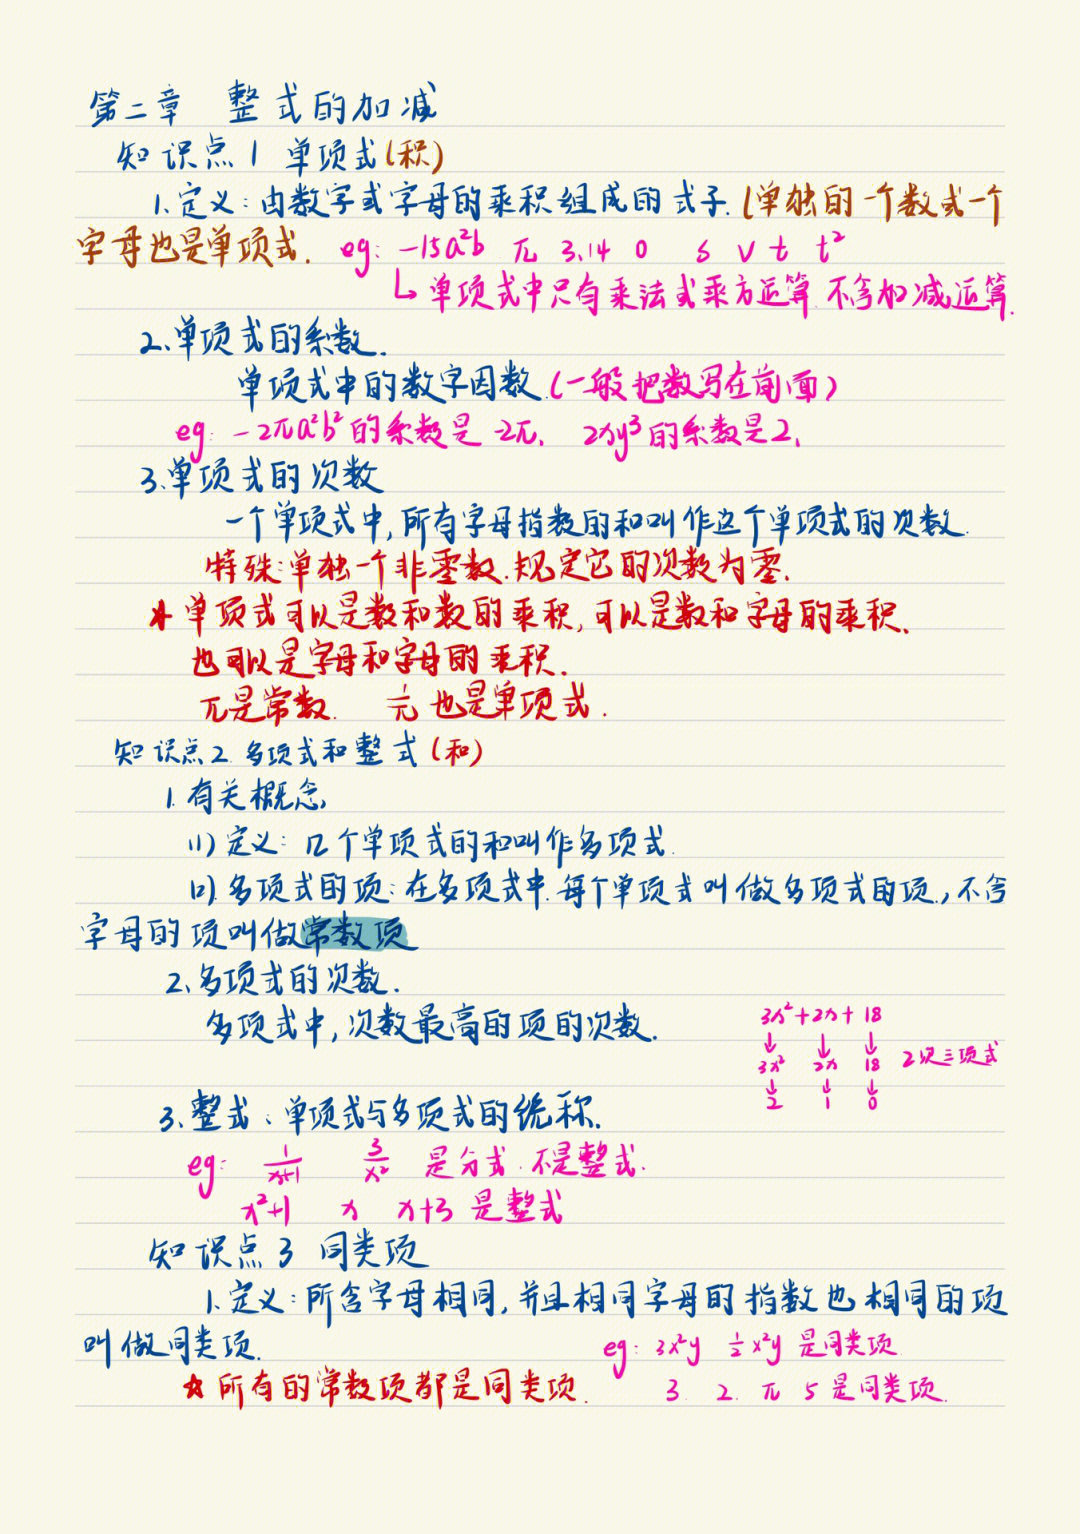 第二章 整式的加减
知识点1 单项式(积)
1.定义:由数字或字母的乘积组成的式子.(单独的一个数或一个
字母也是单项式. eg: -15a²b π 3.14 0 s v t t²
↳单项式中只有乘法或乘方运算.不含加减运算.
2.单项式的系数.
单项式中的数字因数.(一般把数写在前面)
eg: -2πa²b²的系数是-2π. 2xy³的系数是2.
3.单项式的次数
一个单项式中,所有字母指数的和叫作这个单项式的次数.
特殊:单独一个非零数.规定它的次数为零.
☆单项式可以是数和数的乘积,可以是数和字母的乘积.
也可以是字母和字母的乘积.
π是常数. 也是单项式.
知识点2.多项式和整式(和)
1.有关概念
(1)定义:几个单项式的和叫作多项式.
(2).多项式的项:在多项式中.每个单项式叫做多项式的项.,不含
字母的项叫做常数项
2.多项式的次数.
多项式中,次数最高的项的次数.
3x²+2x+18
↓ ↓ ↓
3x² 2x 18 2次三项式
↓ ↓ ↓
2 1 0
3.整式:单项式与多项式的统称.
eg: 1/(x+1) 3/x² 是分式.不是整式.
x²+1 x x+3 是整式
知识点3 同类项
1.定义:所含字母相同,并且相同字母的指数也相同的项
叫做同类项. eg: 3x²y ½x²y 是同类项.
☆所有的常数项都是同类项. 3. 2. π 5是同类项.